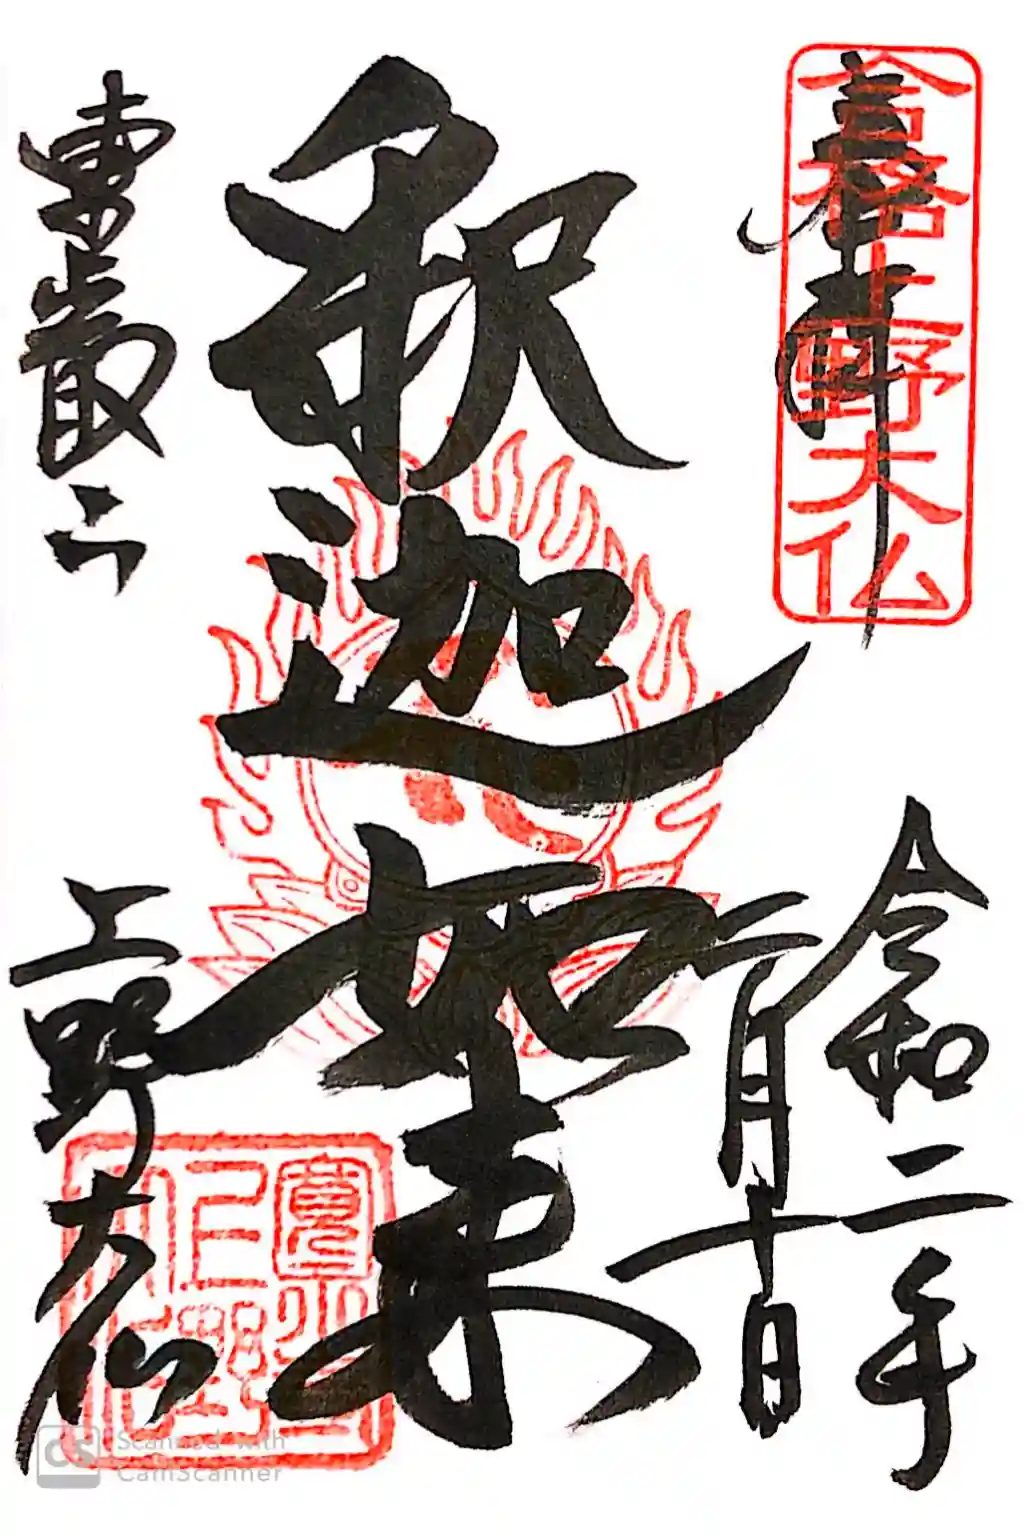 奉拝
合格上野大仏
令和二年
二月十日
釈迦如来
東叡山
上野大仏
Scanned with
CamScanner